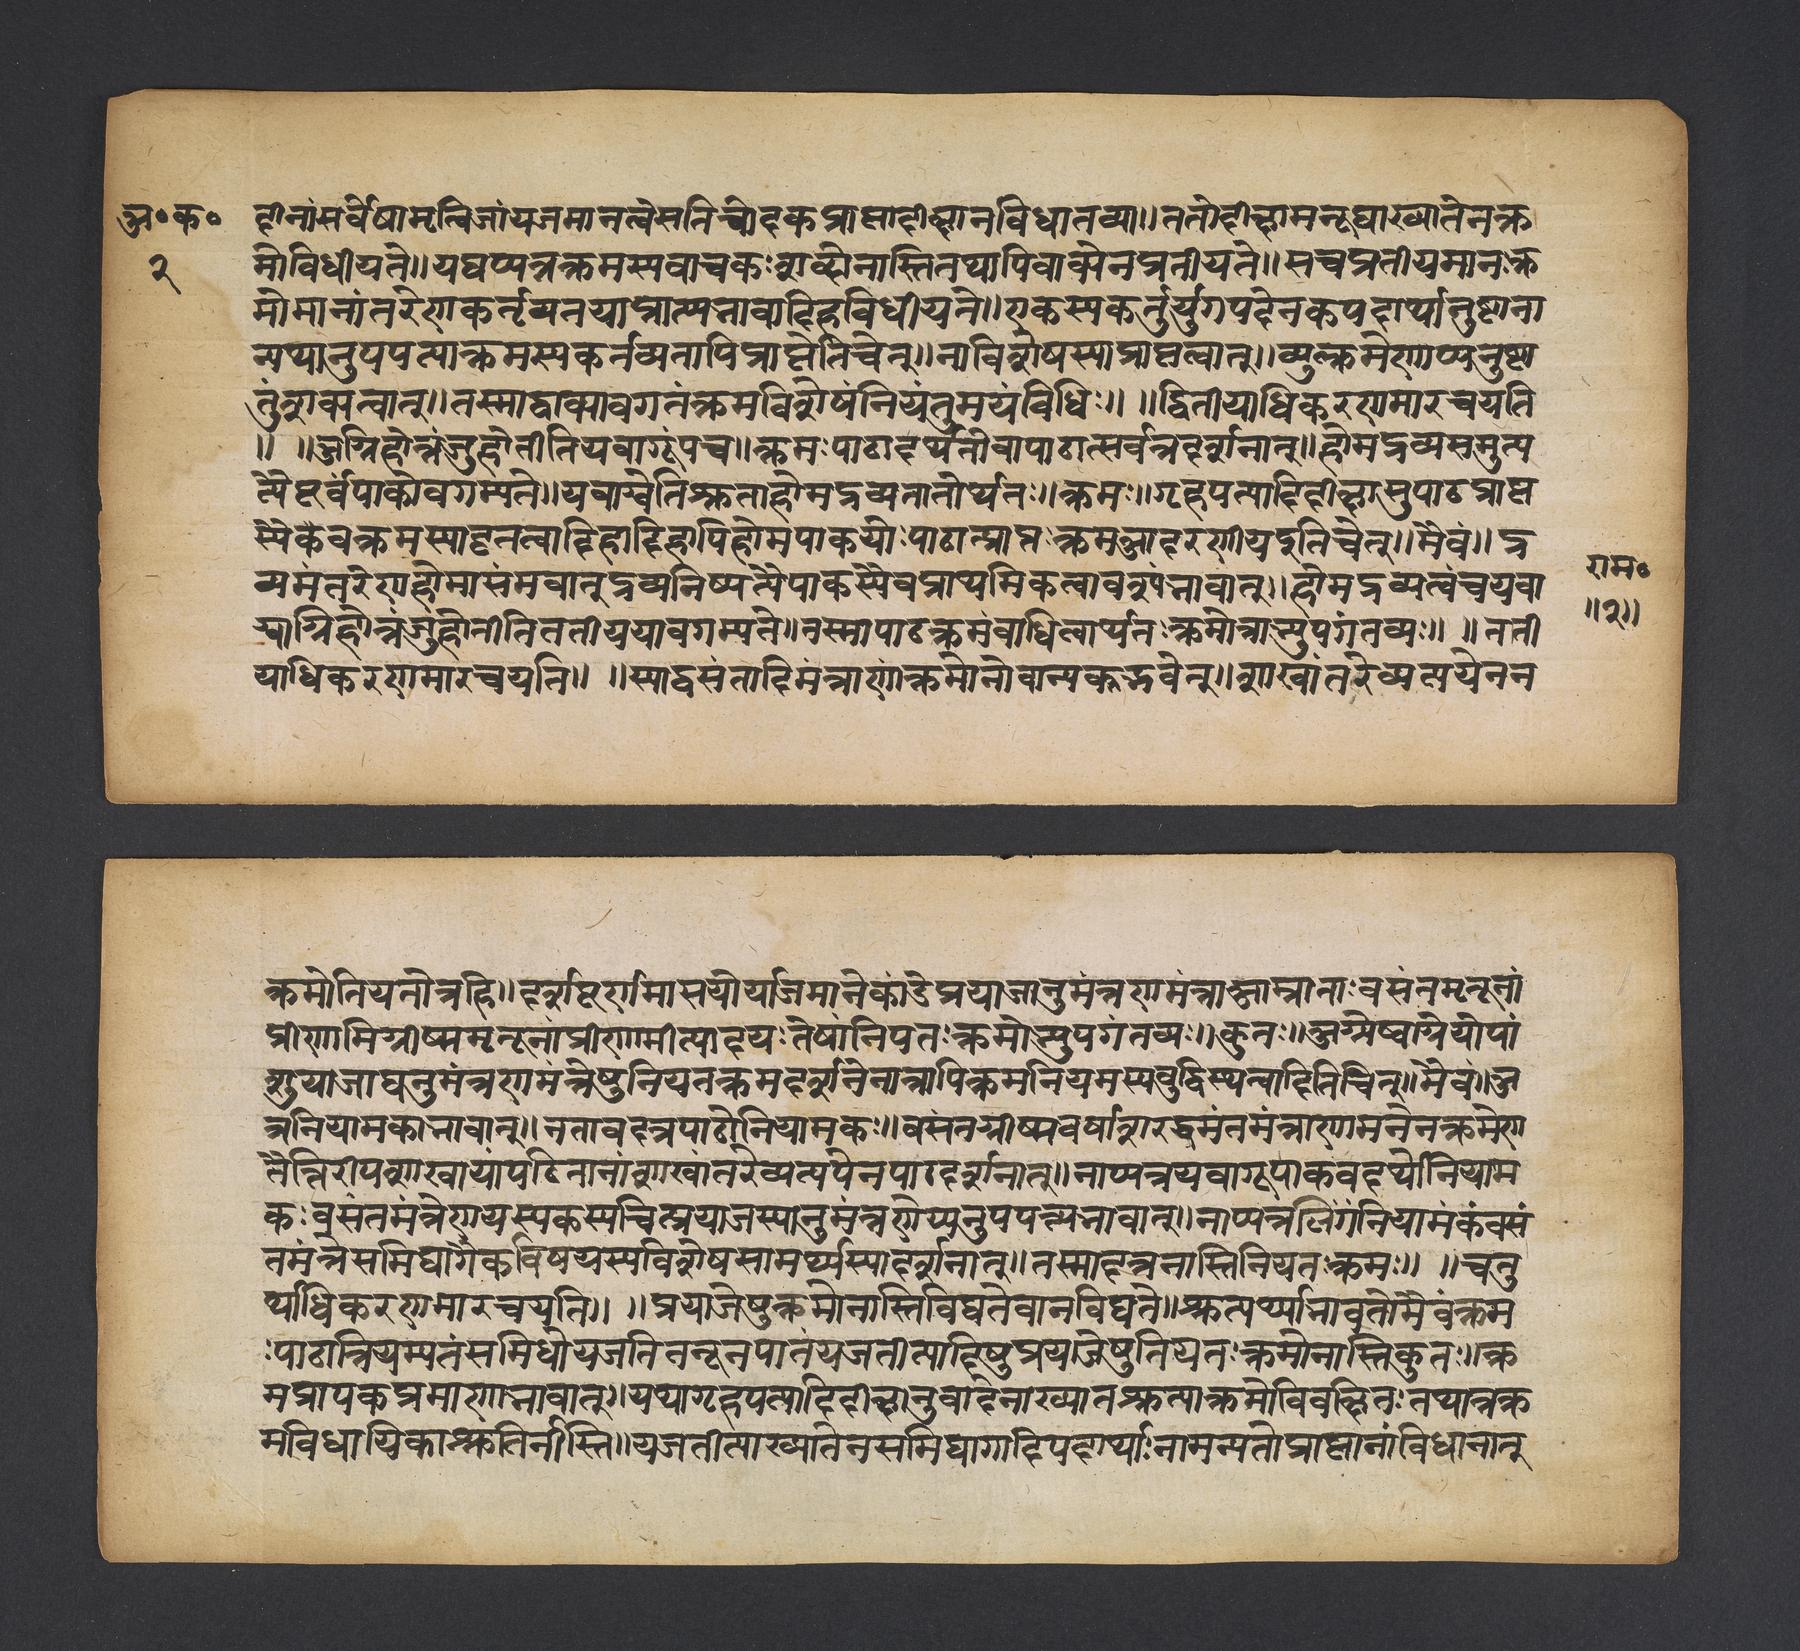 अ॰क॰
२
दीनांसर्वेषामृत्विजांयजमानत्वेसतिचोदकप्राप्तादीक्षानविधातव्या॥ततोदीक्षामनूद्याख्यातेनक्र
मोविधीयते॥यद्यप्यत्रक्रमस्यवाचकःशब्दोनास्तितथापिवाक्येनप्रतीयते॥सचप्रतीयमानःक्र
मोमानांतरेणकर्तव्यतयाप्रात्यभावादिहविधीयते॥एकस्यकर्तुर्युगपदनेकपदार्थानुष्ठाना
न्यथानुपपत्त्याक्रमस्यकर्तव्यतापिप्राप्तेतिचेत्॥नाविशेषस्याप्राप्तत्वात्॥व्युत्क्रमेणाप्यनुष्ठा
तुंशक्यत्वात्॥तस्माद्वाक्यावगतंक्रमविशेषंनियंतुमयंविधिः॥ ॥द्वितीयाधिकरणमारचयति
॥ ॥अग्निहोत्रंजुहोतीतियवागूंपच॥क्रमःपाठादर्थतोवापाठात्सर्वत्रदर्शनात्॥होमद्रव्यसमुत्प
त्त्यैपूर्वंपाकोवगम्यते॥यवाग्वेतिश्रुताहोमद्रव्यतातोर्थतः॥क्रमः॥गृहपत्यादिदीक्षासुपाठप्राप्त
स्यैकवक्रमस्यादृतत्वादिहादिहापिहोमपाकयोःपाठात्प्राप्तःक्रमआदरणीयइतिचेत्॥मैवं॥द्र
व्यमंतरेणहोमासंभवात्द्रव्यनिष्पत्त्यैपाकस्यैवप्राथमिकत्वावश्यंभावात्॥होमद्रव्यत्वंचयवा
ग्वाग्निहोत्रंजुहोतीतितृतीययावगम्यते॥तस्मापाठक्रमंबाधित्वार्थतःक्रमोत्राभ्युपगंतव्यः॥ ॥तृती
याधिकरणमारचयति॥ ॥स्याद्वसंतादिमंत्राणांक्रमोनोवान्यवद्भवेत्॥शाखांतरेव्यत्ययेनन
राम॰
॥२॥
क्रमोनियतोत्रहि॥दर्शपूर्णमासयोर्याजमानेकांडेप्रयाजानुमंत्रणमंत्राआम्नाताःवसंतमृतूनां
प्रीणामिग्रीष्ममृतूनांप्रीणामीत्यादयःतेषांनियतःक्रमोभ्युपगंतव्यः॥कुतः॥अग्नेष्वाग्नेयोपां
शुयाजाद्यनुमंत्रणमंत्रेषुनियतक्रमदर्शनेनात्रापिक्रमनियमस्यबुद्धिस्थत्वादितिचेत्॥मैवं॥अ
त्रनियामकाभावात्॥नतावदत्रपाठोनियामकः॥वसंतग्रीष्मवर्षाशरद्धेमंतमंत्राणामनेनक्रमेण
तैत्तिरीयशाखायांपठितानांशाखांतरेव्यत्ययेनपाठदर्शनात्॥नाप्यत्रयवागूपाकवदर्थोनियाम
कःवसंतमंत्रेणयस्यकस्यचित्प्रयाजस्यानुमंत्रणेप्यनुपपत्त्यभावात्॥नाप्यत्रलिंगंनियामकंवसं
तमंत्रेसमिद्यागैकविषयस्यविशेषसामर्थ्यस्यादर्शनात्॥तस्मादत्रनास्तिनियतःक्रमः॥ ॥चतु
र्थाधिकरणमारचयति॥ ॥प्रयाजेषुक्रमोनास्तिविद्यतेवानविद्यते॥श्रुत्यर्थाभावतोमैवंक्रम
ःपाठान्नियम्यतेसमिधोयजतितनूनपातंयजतीत्यादिषुप्रयाजेषुनियतःक्रमोनास्तिकुतः॥क्र
मप्रापकप्रमाणाभावात्॥यथागृहपत्यादिदीक्षानुवादेनाख्यातश्रुत्याक्रमोविवक्षितःतथात्रक्र
मविधायिकाश्रुतिर्नास्ति॥यजतीत्याख्यातेनसमिद्यागादिपदार्थानामन्यतोप्राप्तानांविधानात्